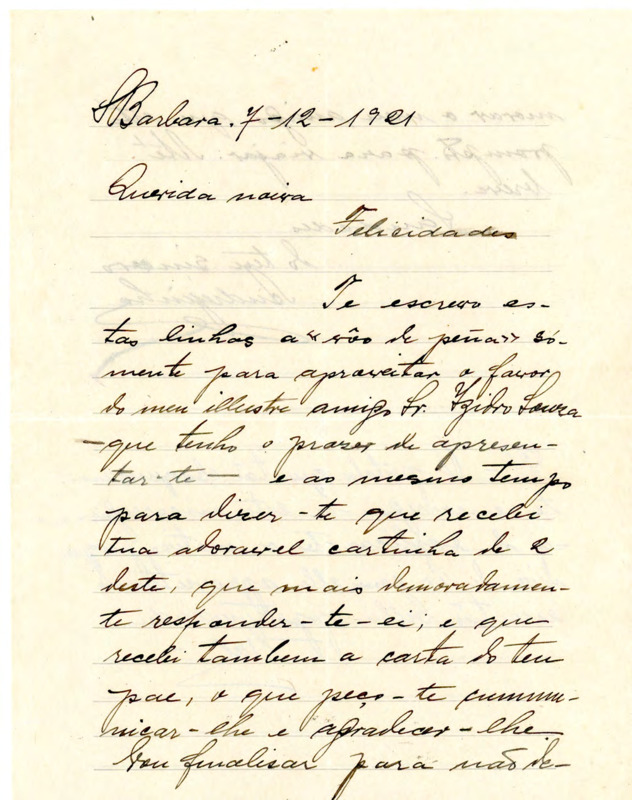 S Barbara. 7-12-1921
Querida noiva
Felicidades
Te escrevo es-
tas linhas a "vôo de peña" só-
mente para aproveitar o favor
do meu illustre amigo Sr. Yzidro Souza
- que tenho o prazer de apresen-
tar-te — e ao mesmo tempo
para dizer-te que recebi
tua adoravel cartinha de 2
deste, que mais demoradamen-
te responder-te-ei; e que
recebi tambem a carta do teu
pae, o que peço-te cummu-
nicar-lhe e agradecer-lhe
Vou finalisar para não de-